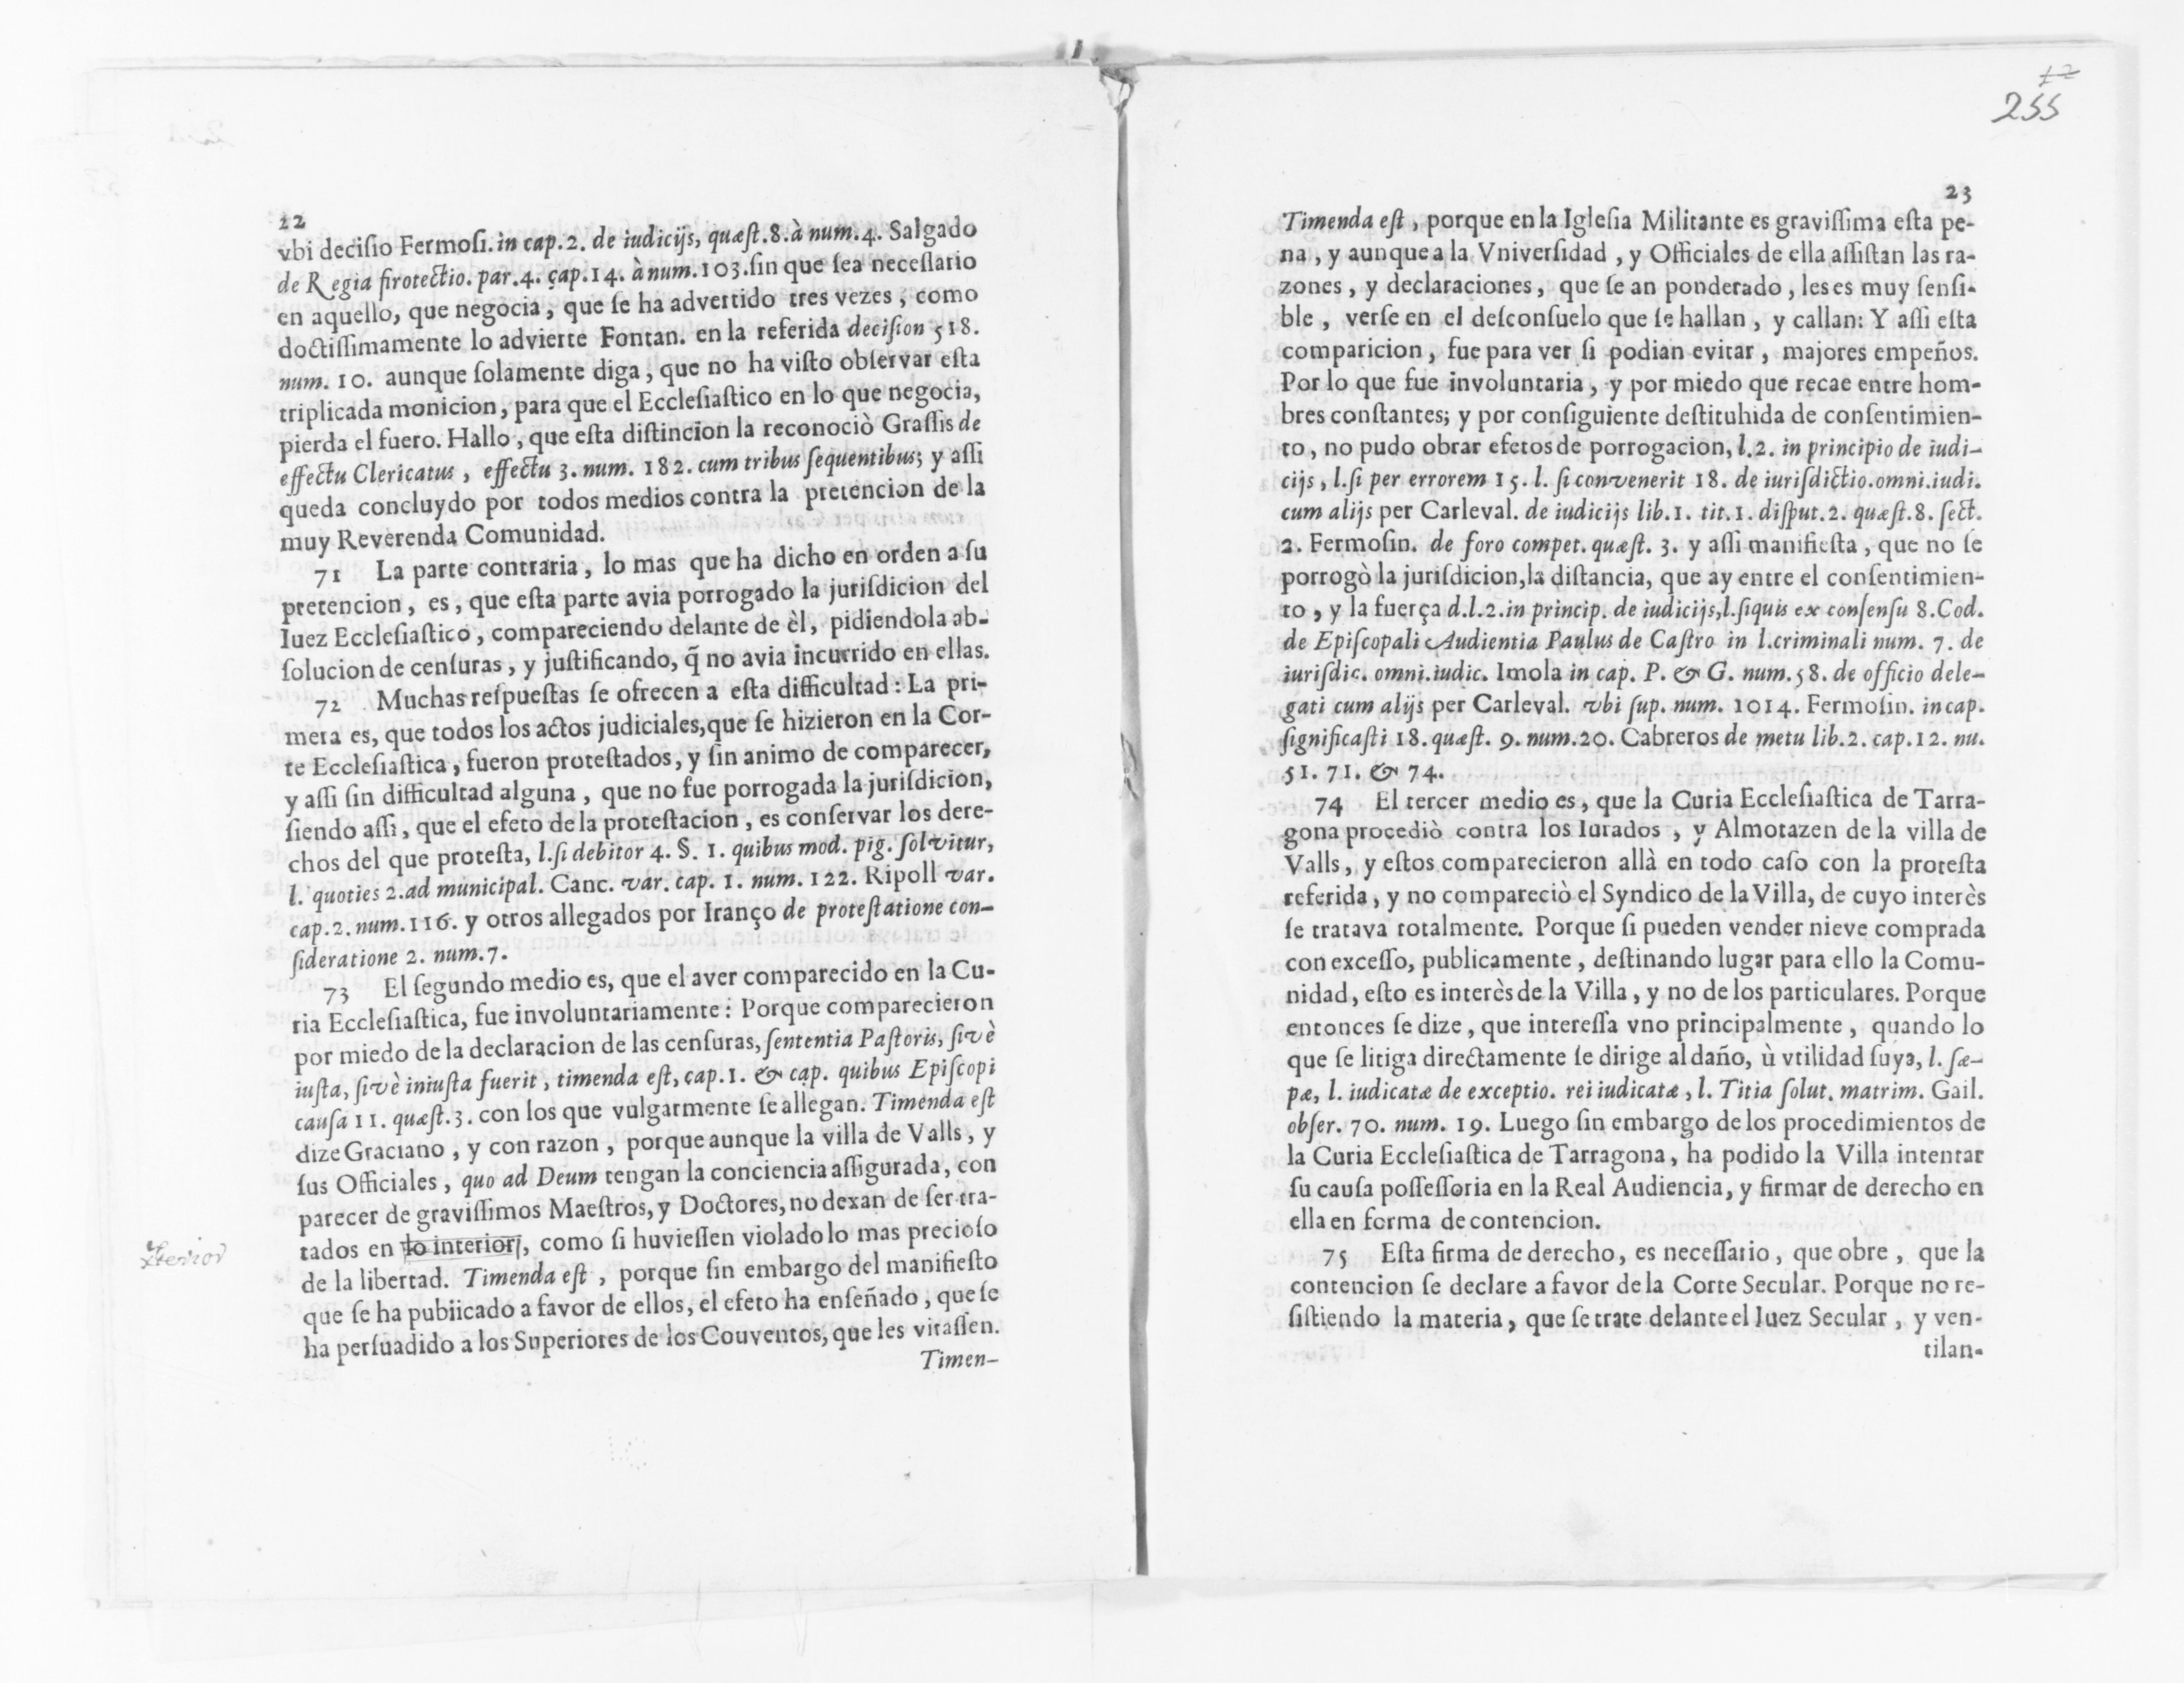 22
vbi decisio Fermosi. in cap. 2. de iudicijs, quæst. 8. à num. 4. Salgado
de Regia firotectio. par. 4. çap. 14. à num. 103. sin que sea necessario
en aquello, que negocia, que se ha advertido tres vezes, como
doctissimamente lo advierte Fontan. en la referida decision 518.
num. 10. aunque solamente diga, que no ha visto observar esta
triplicada monicion, para que el Ecclesiastico en lo que negocia,
pierda el fuero. Hallo, que esta distincion la reconociò Grassis de
effectu Clericatus, effectu 3. num. 182. cum tribus sequentibus; y assi
queda concluydo por todos medios contra la pretencion de la
muy Reverenda Comunidad.
71 La parte contraria, lo mas que ha dicho en orden a su
pretencion, es, que esta parte avia porrogado la jurisdicion del
Iuez Ecclesiastico, compareciendo delante de èl, pidiendola ab-
solucion de censuras, y justificando, q̃ no avia incurrido en ellas.
72 Muchas respuestas se ofrecen a esta difficultad: La pri-
mera es, que todos los actos judiciales, que se hizieron en la Cor-
te Ecclesiastica, fueron protestados, y sin animo de comparecer,
y assi sin difficultad alguna, que no fue porrogada la jurisdicion,
siendo assi, que el efeto de la protestacion, es conservar los dere-
chos del que protesta, l. si debitor 4. §. 1. quibus mod. pig. solvitur,
l. quoties 2. ad municipal. Canc. var. cap. 1. num. 122. Ripoll var.
cap. 2. num. 116. y otros allegados por Iranço de protestatione con-
sideratione 2. num. 7.
73 El segundo medio es, que el aver comparecido en la Cu-
ria Ecclesiastica, fue involuntariamente: Porque comparecieron
por miedo de la declaracion de las censuras, sententia Pastoris, sivè
iusta, sivè iniusta fuerit, timenda est, cap. 1. & cap. quibus Episcopi
causa 11. quæst. 3. con los que vulgarmente se allegan. Timenda est
dize Graciano, y con razon, porque aunque la villa de Valls, y
sus Officiales, quo ad Deum tengan la conciencia assigurada, con
parecer de gravissimos Maestros, y Doctores, no dexan de ser tra-
tados en lo interior, como si huviessen violado lo mas precioso
de la libertad. Timenda est, porque sin embargo del manifiesto
que se ha pubiicado a favor de ellos, el efeto ha enseñado, que se
ha persuadido a los Superiores de los Couventos, que les vitassen.
Timen-
255
23
Timenda est, porque en la Iglesia Militante es gravissima esta pe-
na, y aunque a la Vniversidad, y Officiales de ella assistan las ra-
zones, y declaraciones, que se an ponderado, les es muy sensi-
ble, verse en el desconsuelo que se hallan, y callan: Y assi esta
comparicion, fue para ver si podian evitar, majores empeños.
Por lo que fue involuntaria, y por miedo que recae entre hom-
bres constantes; y por consiguiente destituhida de consentimien-
to, no pudo obrar efetos de porrogacion, l. 2. in principio de iudi-
cijs, l. si per errorem 15. l. si convenerit 18. de iurisdictio. omni. iudi.
cum alijs per Carleval. de iudicijs lib. 1. tit. 1. disput. 2. quæst. 8. sect.
2. Fermosin. de foro compet. quæst. 3. y assi manifiesta, que no se
porrogò la jurisdicion, la distancia, que ay entre el consentimien-
to, y la fuerça d. l. 2. in princip. de iudicijs, l. siquis ex consensu 8. Cod.
de Episcopali Audientia Paulus de Castro in l. criminali num. 7. de
iurisdic. omni. iudic. Imola in cap. P. & G. num. 58. de officio dele-
gati cum alijs per Carleval. vbi sup. num. 1014. Fermosin. in cap.
significasti 18. quæst. 9. num. 20. Cabreros de metu lib. 2. cap. 12. nu.
51. 71. & 74.
74 El tercer medio es, que la Curia Ecclesiastica de Tarra-
gona procediò contra los Iurados, y Almotazen de la villa de
Valls, y estos comparecieron allà en todo caso con la protesta
referida, y no compareciò el Syndico de la Villa, de cuyo interès
se tratava totalmente. Porque si pueden vender nieve comprada
con excesso, publicamente, destinando lugar para ello la Comu-
nidad, esto es interès de la Villa, y no de los particulares. Porque
entonces se dize, que interessa vno principalmente, quando lo
que se litiga directamente se dirige al daño, ù vtilidad suya, l. sæ-
pæ, l. iudicatæ de exceptio. rei iudicatæ, l. Titia solut. matrim. Gail.
obser. 70. num. 19. Luego sin embargo de los procedimientos de
la Curia Ecclesiastica de Tarragona, ha podido la Villa intentar
su causa possessoria en la Real Audiencia, y firmar de derecho en
ella en forma de contencion.
75 Esta firma de derecho, es necessario, que obre, que la
contencion se declare a favor de la Corte Secular. Porque no re-
sistiendo la materia, que se trate delante el Juez Secular, y ven-
tilan-